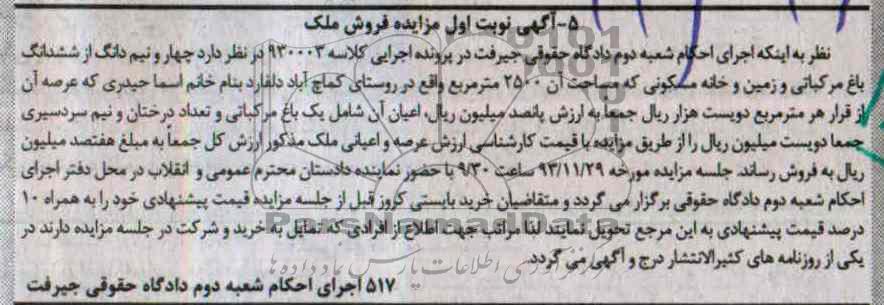 ۵-آگهی نوبت اول مزایده فروش ملک
نظر به اینکه اجرای احکام شعبه دوم دادگاه حقوقی جیرفت در پرونده اجرایی کلاسه ۹۳۰۰۰۳ در نظر دارد چهار و نیم دانگ از ششدانگ
باغ مرکباتی و زمین و خانه مسکونی که مساحت آن ۲۵۰۰ مترمربع واقع در روستای کماچ آباد دلفارد بنام خانم اسما حیدری که عرصه آن
از قرار هر مترمربع دویست هزار ریال جمعا به ارزش پانصد میلیون ریال، اعیان آن شامل یک باغ مرکباتی و تعداد درختان و نیم سردسیری
جمعا دویست میلیون ریال را از طریق مزایده با قیمت کارشناسی ارزش عرصه و اعیانی ملک مذکور ارزش کل جمعاً به مبلغ هفتصد میلیون
ریال به فروش رساند. جلسه مزایده مورخه ۹۳/۱۱/۲۹ ساعت ۹/۳۰ با حضور نماینده دادستان محترم عمومی و انقلاب در محل دفتر اجرای
احکام شعبه دوم دادگاه حقوقی برگزار می گردد و متقاضیان خرید بایستی کروز قبل از جلسه مزایده قیمت پیشنهادی خود را به همراه ۱۰
درصد قیمت پیشنهادی به این مرجع تحویل نمایند لذا مراتب جهت اطلاع از افرادی که تمایل به خرید و شرکت در جلسه مزایده دارند در
یکی از روزنامه های کثیرالانتشار درج و آگهی می گردد.
۵۱۷ اجرای احکام شعبه دوم دادگاه حقوقی جیرفت
ParsNamadData